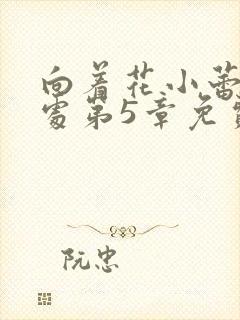 向着花小蕾
处第5章免费
阮忠